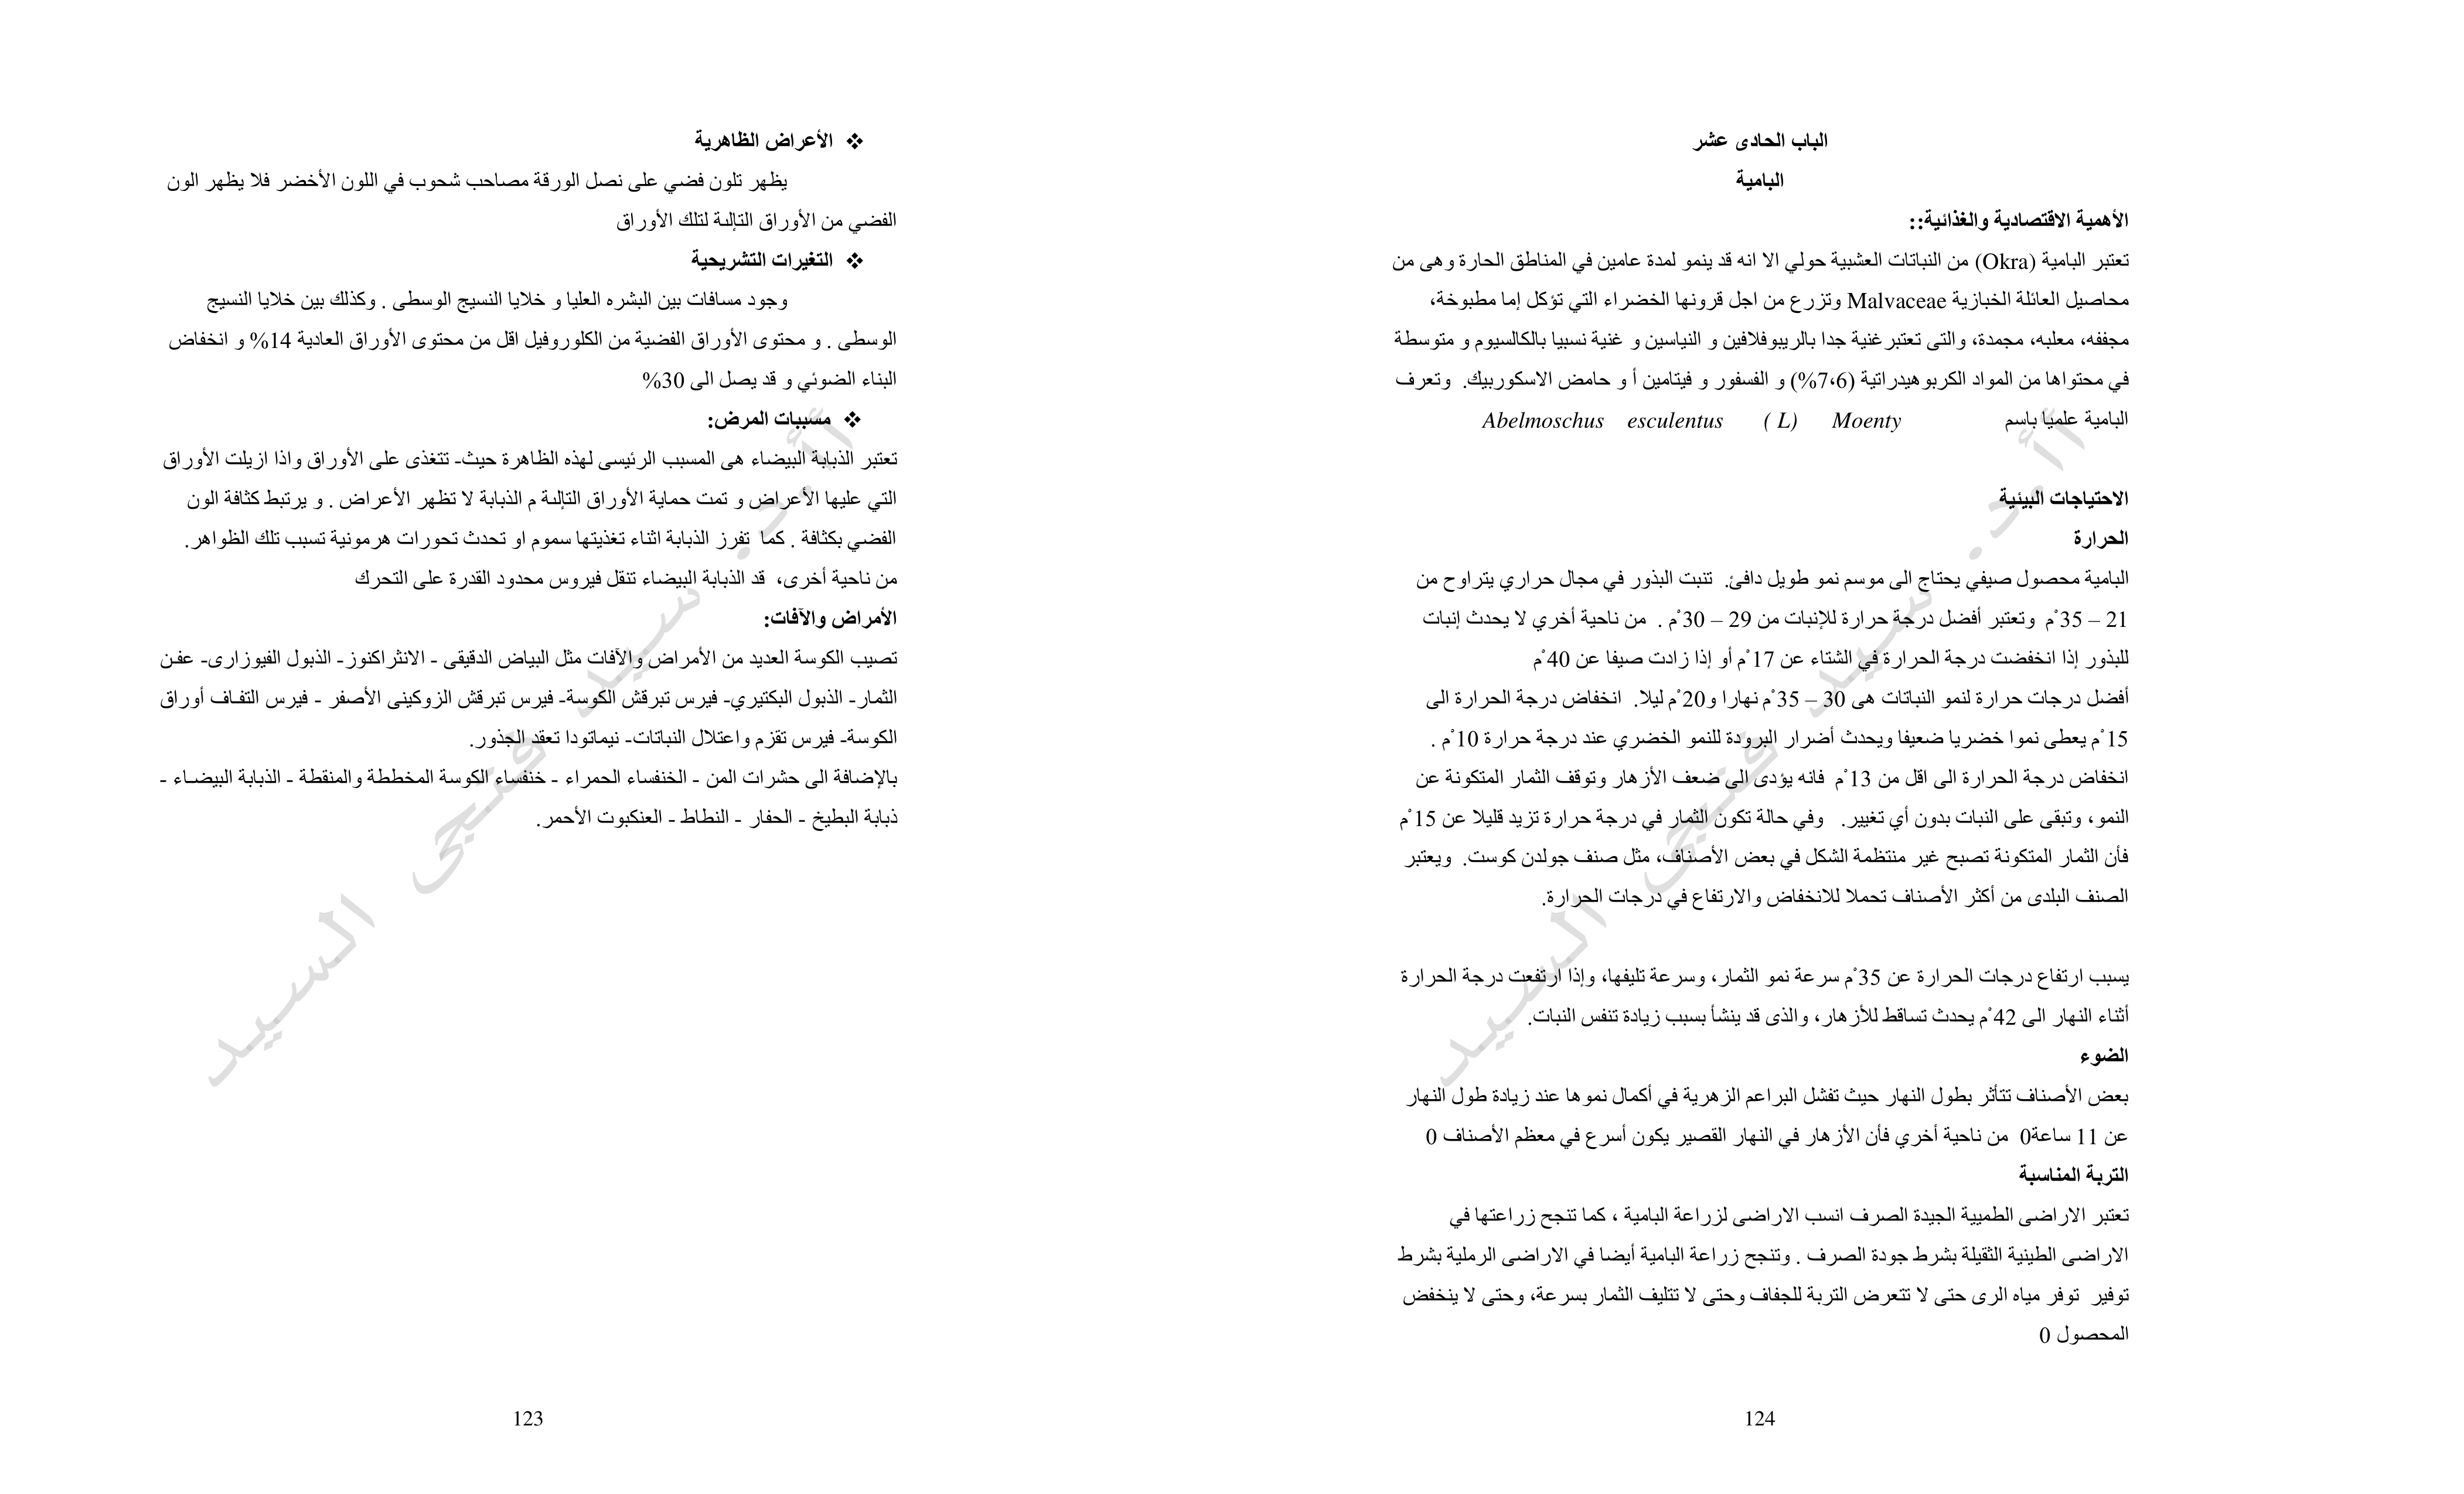 ❖ الأعراض الظاهرية
يظهر تلون فضي على نصل الورقة مصاحب شحوب في اللون الأخضر فلا يظهر الون
الفضي من الأوراق التإلىة لتلك الأوراق
❖ التغيرات التشريحية
وجود مسافات بين البشره العليا و خلايا النسيج الوسطى . وكذلك بين خلايا النسيج
الوسطى . و محتوى الأوراق الفضية من الكلوروفيل اقل من محتوى الأوراق العادية 14% و انخفاض
البناء الضوئي و قد يصل الى 30%
❖ مسببات المرض:
تعتبر الذبابة البيضاء هى المسبب الرئيسى لهذه الظاهرة حيث- تتغذى على الأوراق واذا ازيلت الأوراق
التي عليها الأعراض و تمت حماية الأوراق التإلىة م الذبابة لا تظهر الأعراض . و يرتبط كثافة الون
الفضي بكثافة . كما تفرز الذبابة اثناء تغذيتها سموم او تحدث تحورات هرمونية تسبب تلك الظواهر.
من ناحية أخرى، قد الذبابة البيضاء تنقل فيروس محدود القدرة على التحرك
الأمراض والآفات:
تصيب الكوسة العديد من الأمراض والآفات مثل البياض الدقيقى - الانثراكنوز- الذبول الفيوزارى- عفن
الثمار- الذبول البكتيري- فيرس تبرقش الكوسة- فيرس تبرقش الزوكينى الأصفر - فيرس التفاف أوراق
الكوسة- فيرس تقزم واعتلال النباتات- نيماتودا تعقد الجذور.
بالإضافة الى حشرات المن - الخنفساء الحمراء - خنفساء الكوسة المخططة والمنقطة - الذبابة البيضاء -
ذبابة البطيخ - الحفار - النطاط - العنكبوت الأحمر.
أ.د. سيد فتحى السيد
123
الباب الحادى عشر
البامية
الأهمية الاقتصادية والغذائية::
تعتبر البامية (Okra) من النباتات العشبية حولي الا انه قد ينمو لمدة عامين في المناطق الحارة وهى من
محاصيل العائلة الخبازية Malvaceae وتزرع من اجل قرونها الخضراء التي تؤكل إما مطبوخة،
مجففه، معلبه، مجمدة، والتى تعتبرغنية جدا بالريبوفلافين و النياسين و غنية نسبيا بالكالسيوم و متوسطة
في محتواها من المواد الكربوهيدراتية (7،6%) و الفسفور و فيتامين أ و حامض الاسكوربيك. وتعرف
البامية علميا باسم Abelmoschus esculentus ( L) Moenty
الاحتياجات البيئية
الحرارة
البامية محصول صيفي يحتاج الى موسم نمو طويل دافئ. تنبت البذور في مجال حراري يتراوح من
21 – 35°م وتعتبر أفضل درجة حرارة للإنبات من 29 – 30°م . من ناحية أخري لا يحدث إنبات
للبذور إذا انخفضت درجة الحرارة في الشتاء عن 17°م أو إذا زادت صيفا عن 40°م
أفضل درجات حرارة لنمو النباتات هى 30 – 35°م نهارا و20°م ليلا. انخفاض درجة الحرارة الى
15°م يعطى نموا خضريا ضعيفا ويحدث أضرار البرودة للنمو الخضري عند درجة حرارة 10°م .
انخفاض درجة الحرارة الى اقل من 13°م فانه يؤدى الى ضعف الأزهار وتوقف الثمار المتكونة عن
النمو، وتبقى على النبات بدون أي تغيير. وفي حالة تكون الثمار في درجة حرارة تزيد قليلا عن 15°م
فأن الثمار المتكونة تصبح غير منتظمة الشكل في بعض الأصناف، مثل صنف جولدن كوست. ويعتبر
الصنف البلدى من أكثر الأصناف تحملا للانخفاض والارتفاع في درجات الحرارة.
يسبب ارتفاع درجات الحرارة عن 35°م سرعة نمو الثمار، وسرعة تليفها، وإذا ارتفعت درجة الحرارة
أثناء النهار الى 42°م يحدث تساقط للأزهار، والذى قد ينشأ بسبب زيادة تنفس النبات.
الضوء
بعض الأصناف تتأثر بطول النهار حيث تفشل البراعم الزهرية في أكمال نموها عند زيادة طول النهار
عن 11 ساعة0 من ناحية أخري فأن الأزهار في النهار القصير يكون أسرع في معظم الأصناف 0
التربة المناسبة
تعتبر الاراضى الطميية الجيدة الصرف انسب الاراضى لزراعة البامية ، كما تنجح زراعتها في
الاراضى الطينية الثقيلة بشرط جودة الصرف . وتنجح زراعة البامية أيضا في الاراضى الرملية بشرط
توفير توفر مياه الرى حتى لا تتعرض التربة للجفاف وحتى لا تتليف الثمار بسرعة، وحتى لا ينخفض
المحصول 0
أ.د. سيد فتحى السيد
124